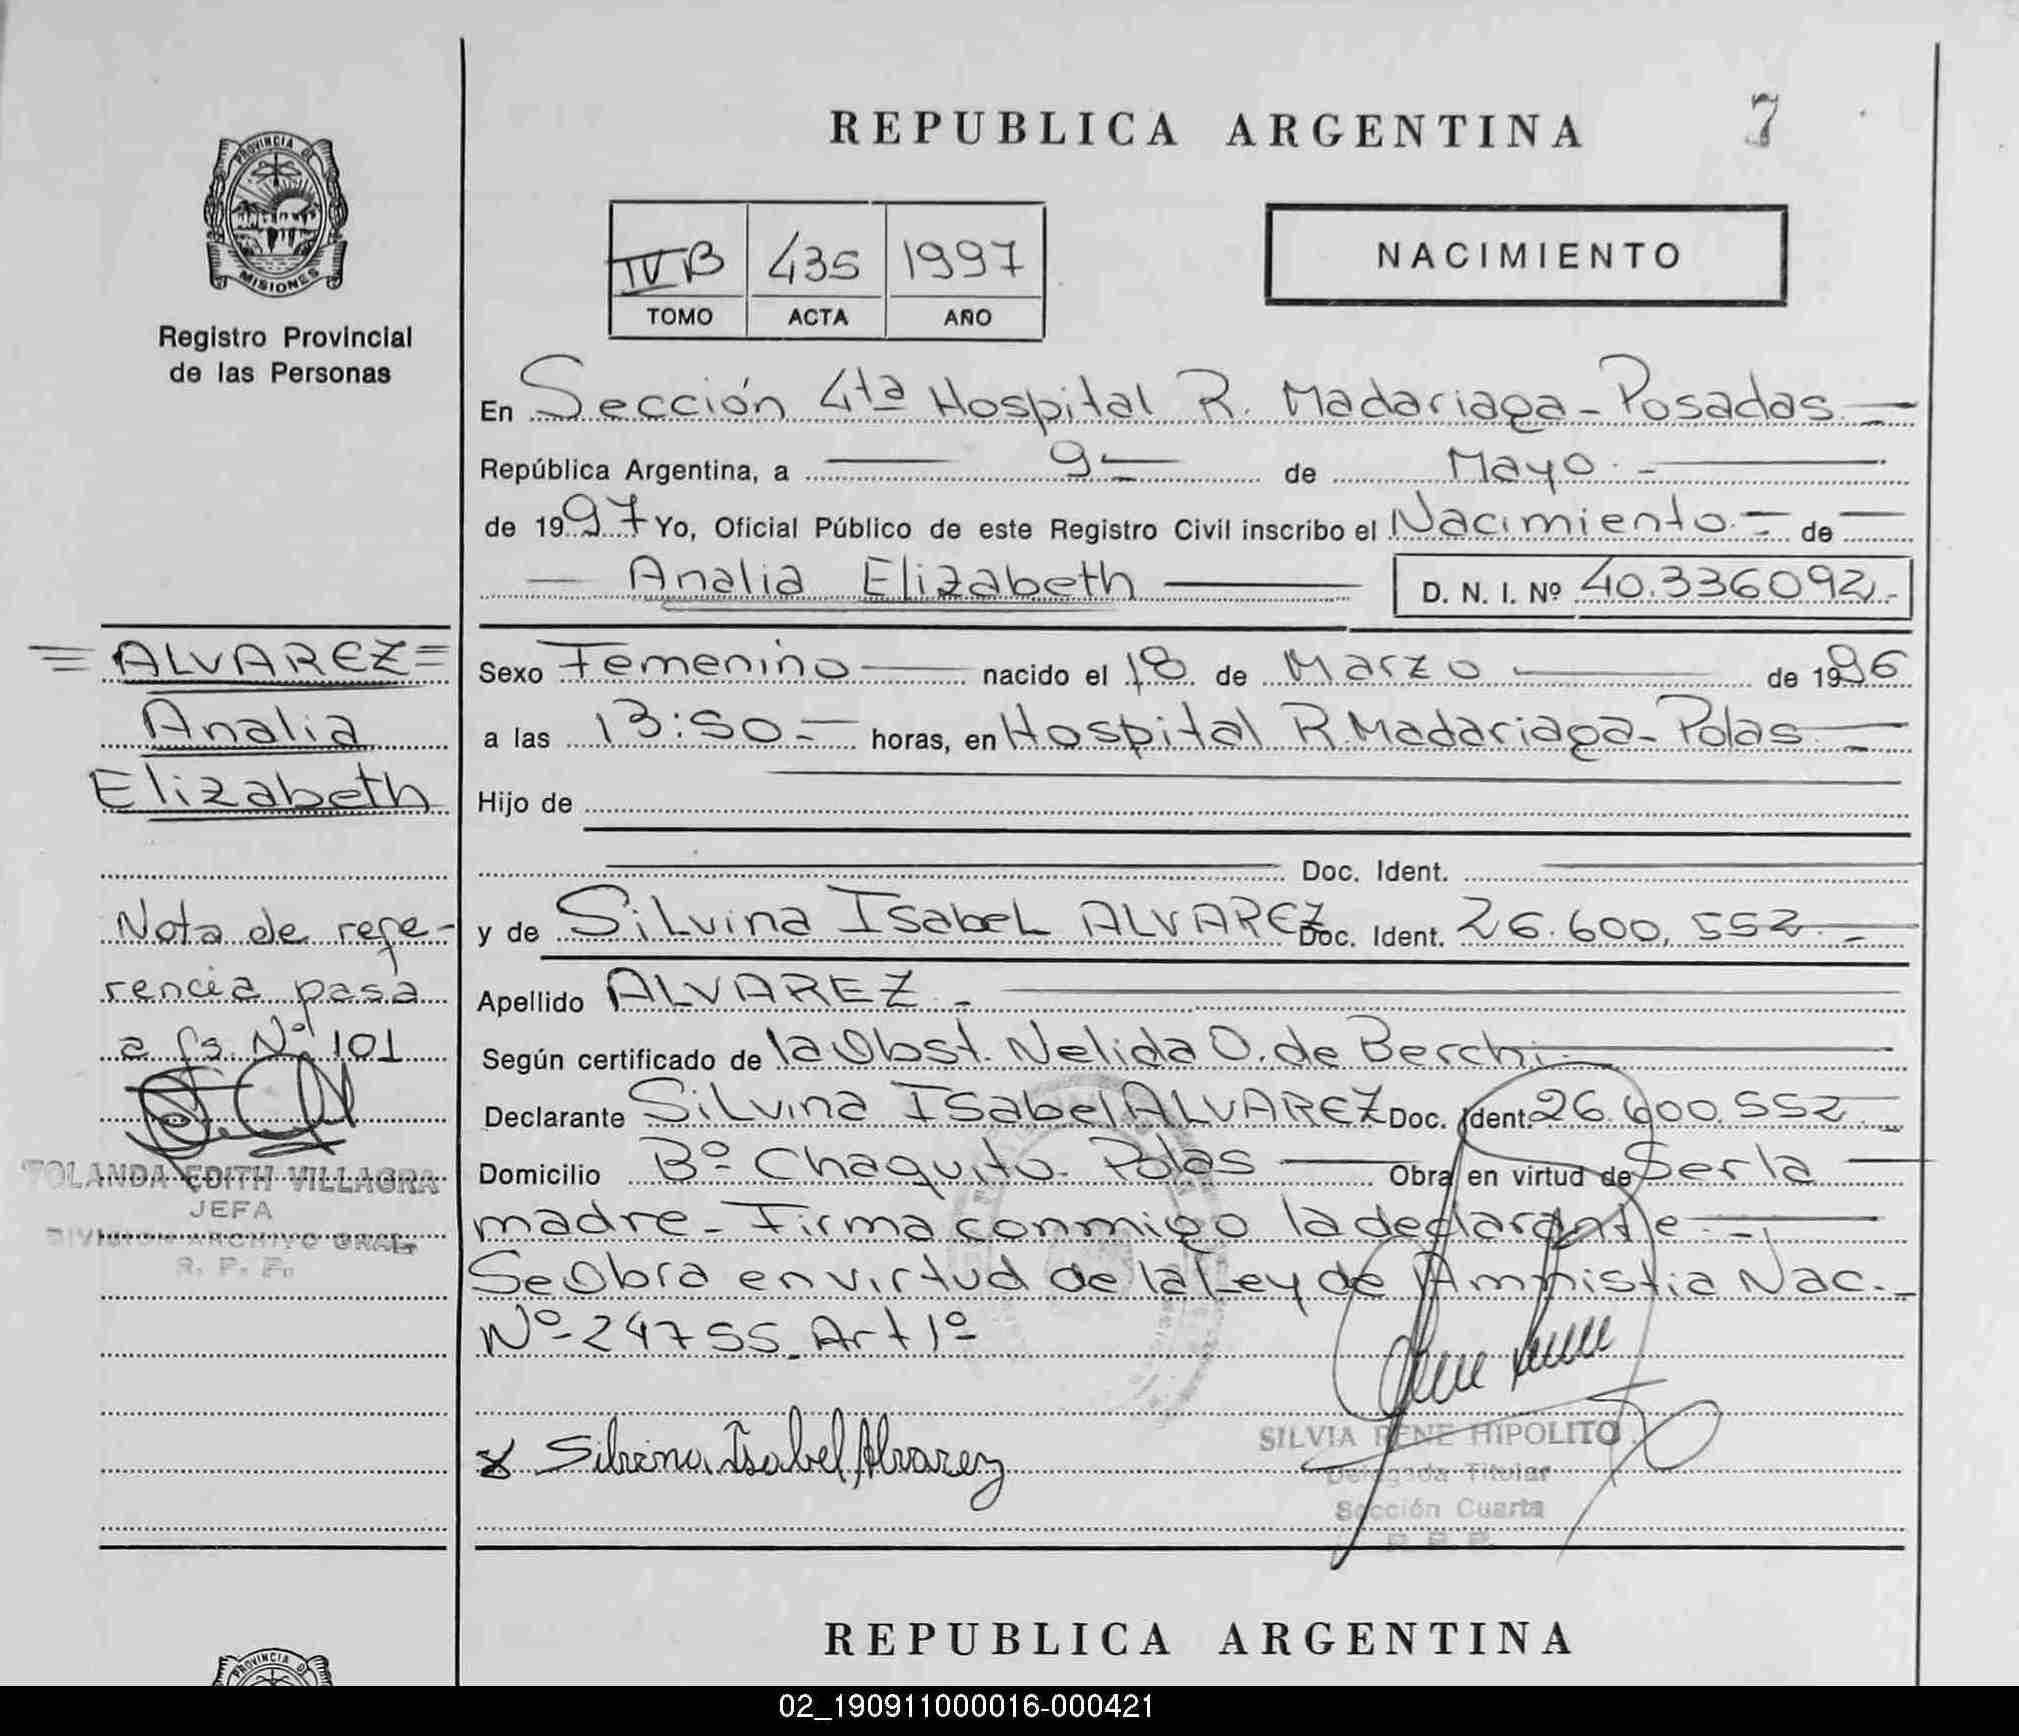 REPUBLICA ARGENTINA
7
PROVINCIA DE
MISIONES
Registro Provincial
de las Personas
IV B 435 1997
TOMO ACTA AÑO
NACIMIENTO
En Sección 4ta Hospital R. Madariaga - Posadas
República Argentina, a 9 de Mayo
de 1997 Yo, Oficial Público de este Registro Civil inscribo el Nacimiento de
Analia Elizabeth D. N. I. Nº 40.336092
Sexo Femenino nacido el 18 de Marzo de 1996
a las 13:50 horas, en Hospital R. Madariaga - Pdas
Hijo de
Doc. Ident.
y de Silvina Isabel ALVAREZ Doc. Ident. 26.600.552
Apellido ALVAREZ
Según certificado de la Obst. Nelida O. de Berchi
Declarante Silvina Isabel ALVAREZ Doc. Ident. 26.600.552
Domicilio Bº Chaquito - Pdas Obra en virtud de Ser la
madre - Firma conmigo la declarante
Se Obra en virtud de la Ley de Amnistia Nac.
Nº 24755. Art 1º
x Silvina Isabel Alvarez
SILVIA RENE HIPOLITO
Delegada Titular
Sección Cuarta
R. P. P.
ALVAREZ
Analia
Elizabeth
Nota de refe-
rencia pasa
a fs. Nº 101
YOLANDA EDITH VILLAGRA
JEFA
DIVISION ARCHIVO GRAL.
R. P. P.
REPUBLICA ARGENTINA
PROVINCIA DE
02_190911000016-000421